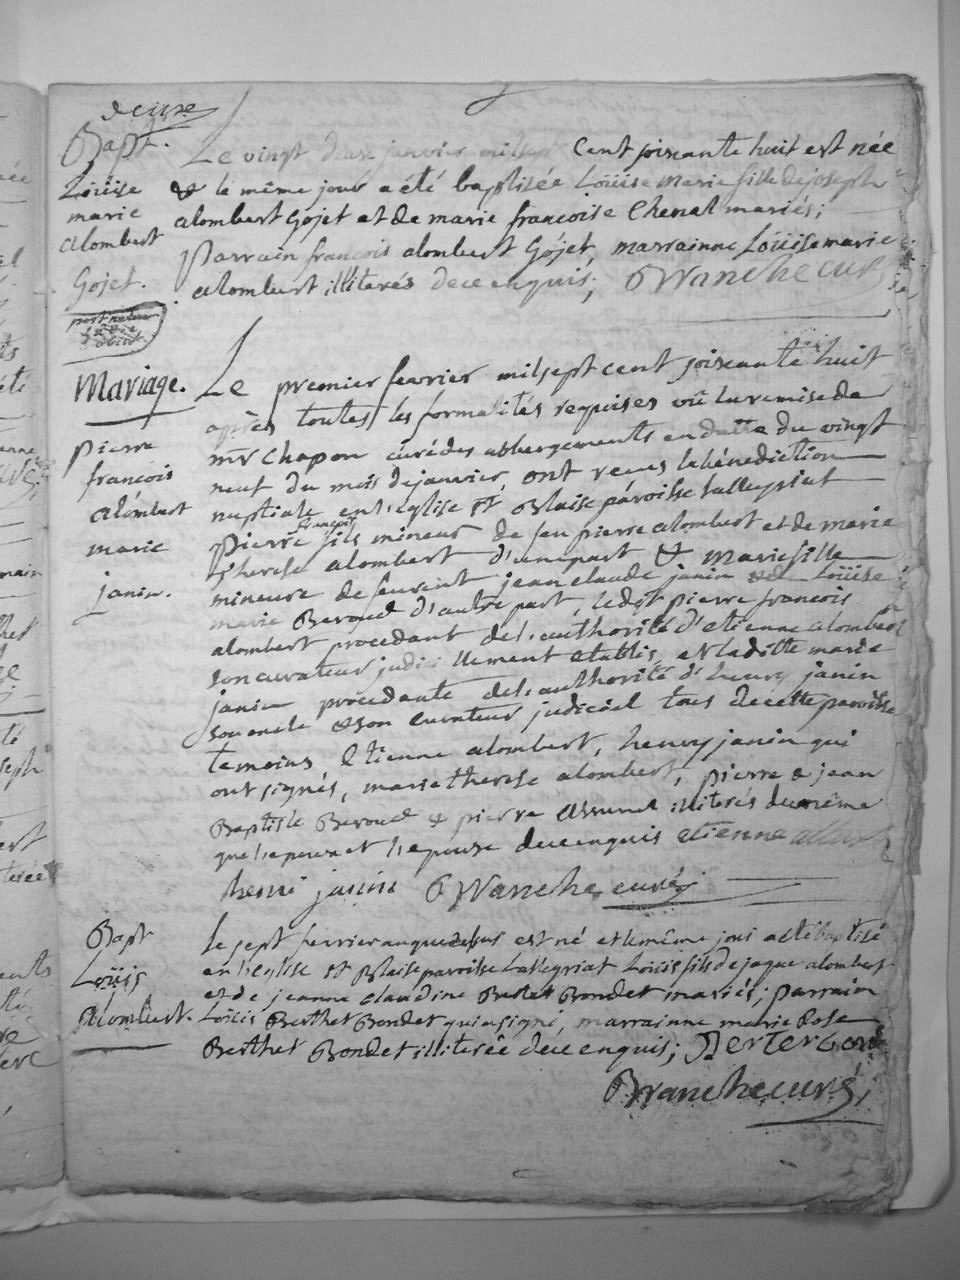 Bapt.
Loüise
marie
alombert
Gojet.
Le vingt deux janvier mil sept cent soixante huit est née
& le même jour a été baptisée Loüise Marie fille de joseph
alombert Gojet et de marie françoise Chenal mariés;
Parrain françois alombert Gojet, marrainne Loüise marie
alombert illiterés de ce enquis; Branche curé
Mariage.
pierre
françois
alombert
marie
janin.
Le premier fevrier mil sept cent soixante huit
après toutes les formalités requises vû la remise de
mr Chapon curé des abbergements en datte du vingt
neuf du mois de janvier, ont reçus la bénediction
nuptiale en l'eglise St Blaise paroisse Lalleyriat
Pierre françois fils mineur de feu pierre alombert et de marie
therese alombert d'une part & Marie fille
mineure de feu jean claude janin & de Loüise
marie Beroud d'autre part, ledt pierre francois
alombert procedant de l'authorité d'etienne alombert
son curateur judiciellement etablis, et laditte marie
janin procedante de l'authorité d'henry janin
son oncle & son curateur judiciel tous de cette paroisse
temoins Etienne alombert, henry janin qui
ont signés, marie therese alombert, pierre & jean
Baptiste Beroud & pierre assunel illiterés de même
que l'epoux et l'epouse de ce enquis etienne
henri janin Branche curé
Bapt
Loüis
Alombert.
Le sept fevrier an que dessus est né et le même jour a eté baptisé
en l'eglise St Blaise paroisse Lalleyriat Loüis fils de jaque alombert
et de jeanne claudine Berthet Bondet mariés; parrain
Loüis Berthet Bondet qui a signé, marrainne marie Rose
Berthet Bondet illiterée de ce enquis;
Branche curé;